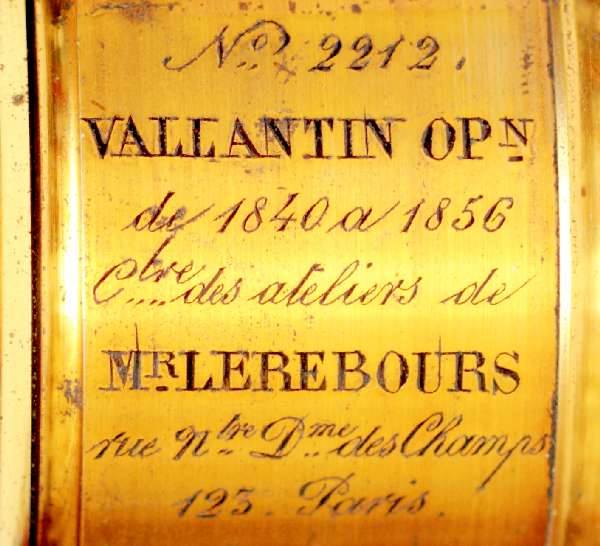 No. 2212.
VALLANTIN OPN
de 1840 a 1856
Ctre des ateliers de
MR LEREBOURS
rue Ntre Dme des Champs
123. Paris.